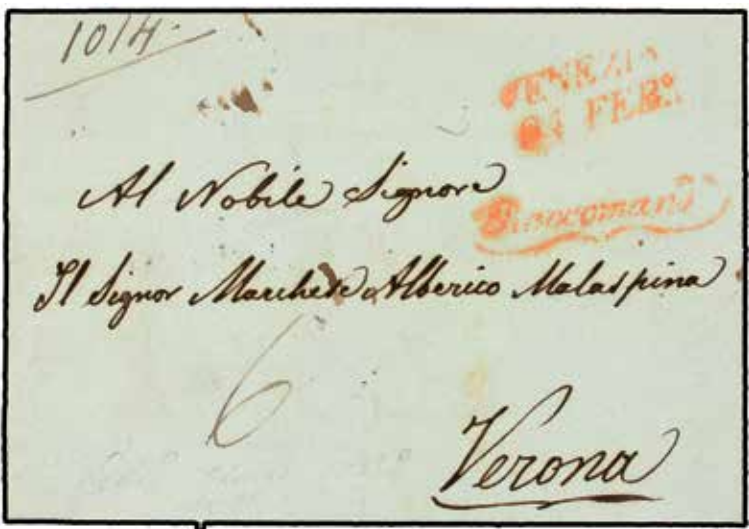 1014.
VENEZIA
FEB.º
Raccomand.
Al Nobile Signore
Il Signor Marchese Alberico Malaspina
6
Verona